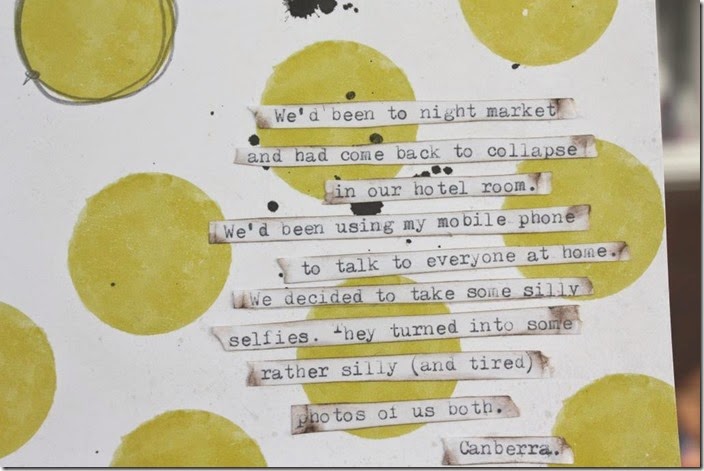 We'd been to night market
and had come back to collapse
in our hotel room.
We'd been using my mobile phone
to talk to everyone at home.
We decided to take some silly
selfies. They turned into some
rather silly (and tired)
photos of us both.
Canberra.